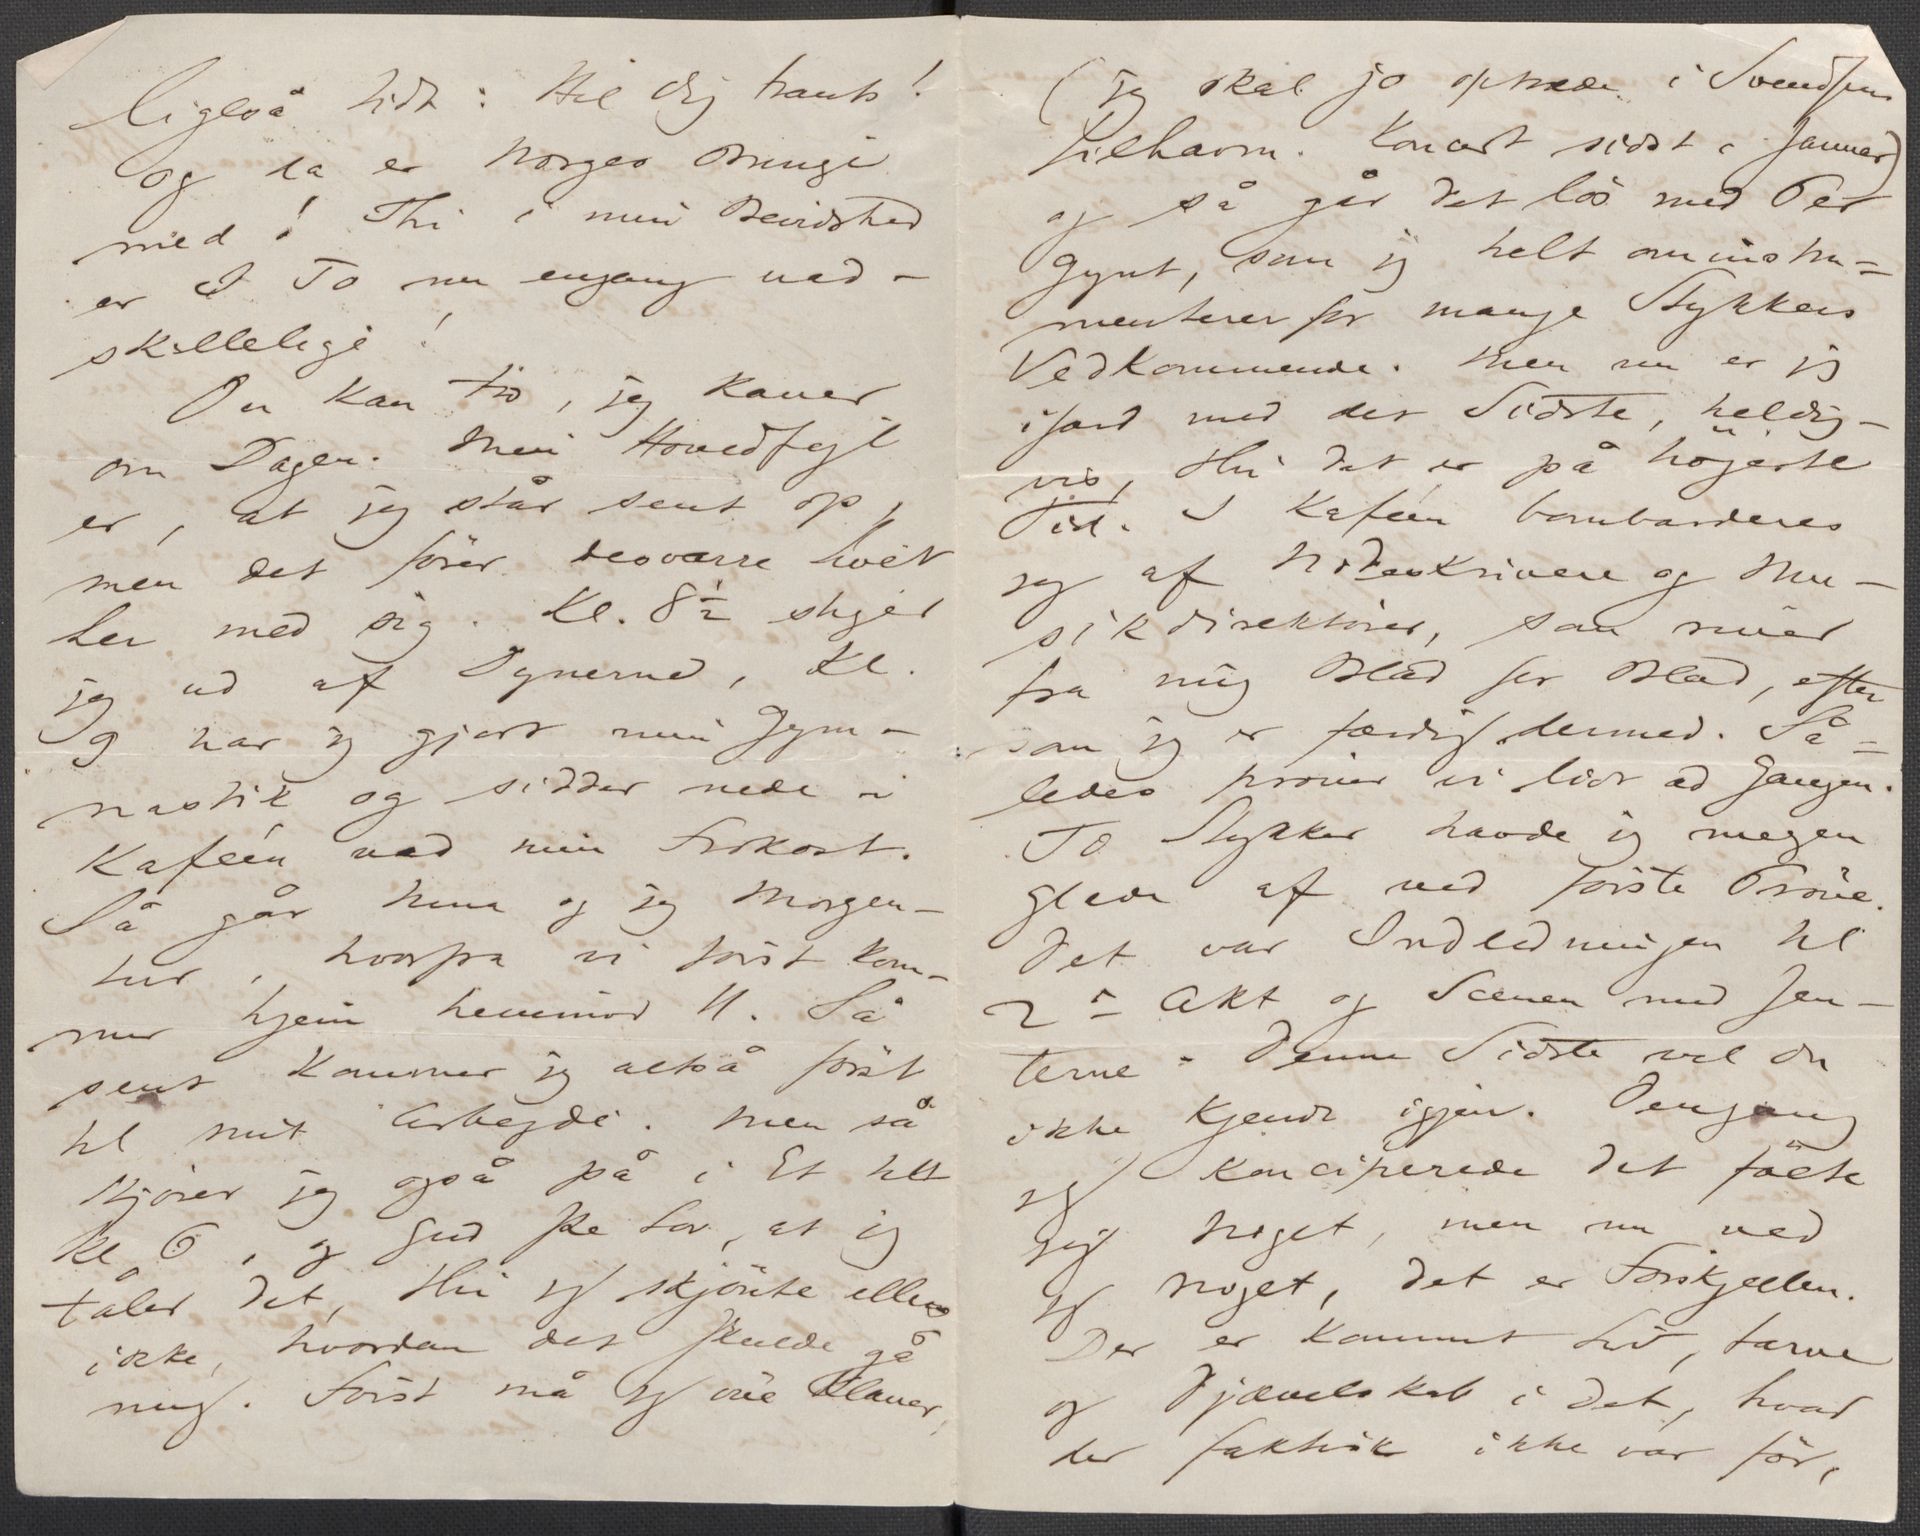 ligeså lidt: Hil dig Frants!
og da er Norges Bringe
med! Thi i min Bevidsthed
er I To nu engang uad-
skillelige!
Du kan tro, jeg kauer
om Dagen. Min Hovedfejl
er, at jeg står sent op,
men det förer desværre livet
her med sig. Kl. 8½ stiger
jeg ud af Dynerne, Kl.
9 har jeg gjort min Gym-
nastik og sidder nede i
Kaféen ved min Frokost.
Så går Nina og jeg Morgen-
tur, hvorfra vi först kom-
mer hjem henimod 11. Så
sent kommer jeg altså först
til mit Arbejde. Men så
kjörer jeg også på i Et til
Kl. 6, og Gud ske Lov, at jeg
tåler det, thi jeg skjönte ellers
ikke, hvordan det skulde gå
mig. Först må jeg öve Klaver,
(jeg skal jo optræde i Svendsens
Filharm. Koncert sidst i Januar)
og så går det lös med Peer
Gynt, som jeg helt ominstru=
menterer for mange Stykkers
Vedkommende. Men nu er jeg
ifærd med det Sidste, heldig-
vis, thi det er på höjeste
Tid. I Kaféen bombarderes
jeg af Nodeskrivere og Mu-
sikdirektörer, som river
fra mig Blad for Blad, efter
som jeg er færdig dermed. Så=
ledes pröver vi lidt ad Gangen.
To Stykker havde jeg megen
Glæde af ved förste Pröve.
Det var Indledningen til
2n Akt og Scenen med Jen-
terne. Denne Sidste vil du
ikke kjende igjen. Dengang
jeg konciperede det fölte
jeg Noget, men nu ved
jeg Noget, det er Forskjellen.
Der er kommet Liv, Farve
og Djævelskab i det, hvad
der faktisk ikke var för,